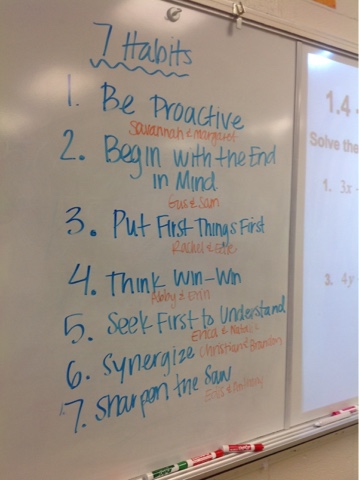 7 Habits
1. Be Proactive
Savannah & Margaret
2. Begin with the End
in Mind
Gus & Sam
3. Put First Things First
Rachel &
4. Think Win-Win
Abby & Erin
5. Seek First to Understand
Erica &
6. Synergize Christian & Brandon
7. Sharpen the Saw
& Anthony
1.4
Solve the
1. 3x
3. 4y